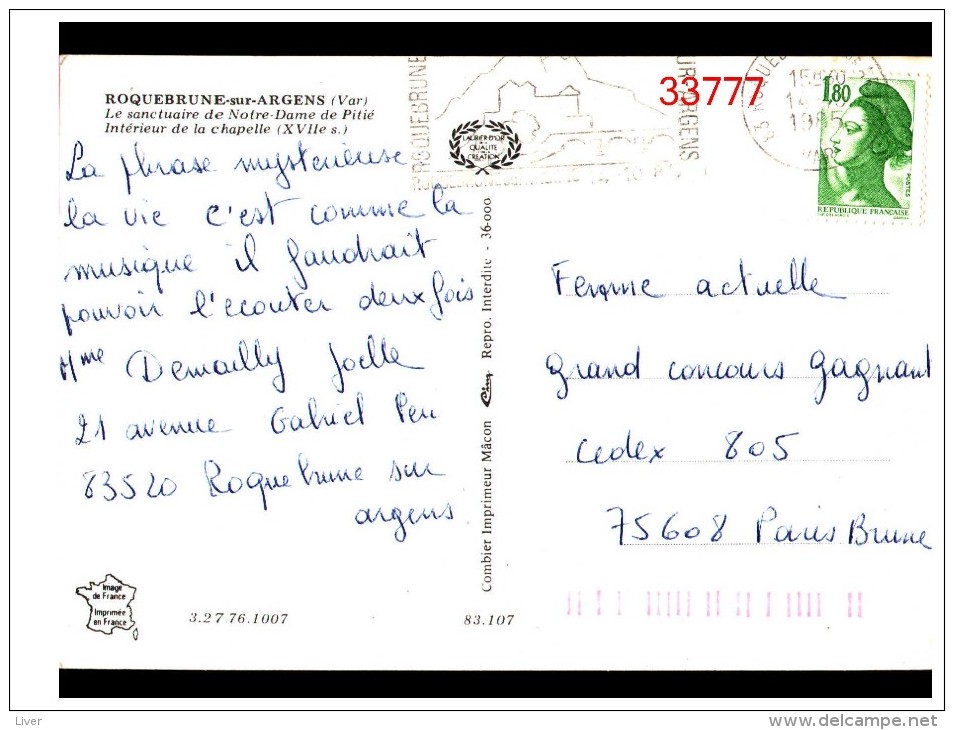 ROQUEBRUNE-sur-ARGENS (Var)
Le sanctuaire de Notre-Dame de Pitié
Intérieur de la chapelle (XVIIe s.)
La phrase mysterieuse
la vie c'est comme la
musique il faudrait
pouvoir l'ecouter deux fois
Mme Demailly Joelle
21 avenue Gabriel Peri
83520 Roquebrune sur
argens
Image
de France
Imprimée
en France
3.27.76.1007
83.107
Combier Imprimeur Mâcon
Repro. Interdite - 36-000
LAURIER D'OR
QUALITÉ
CRÉATION
ROQUEBRUNE
SUR ARGENS
33777
1985
1,80
POSTES
REPUBLIQUE FRANÇAISE
Femme actuelle
grand concours gagnant
cedex 805
75608 Paris Brune
Liver
delcampe.net